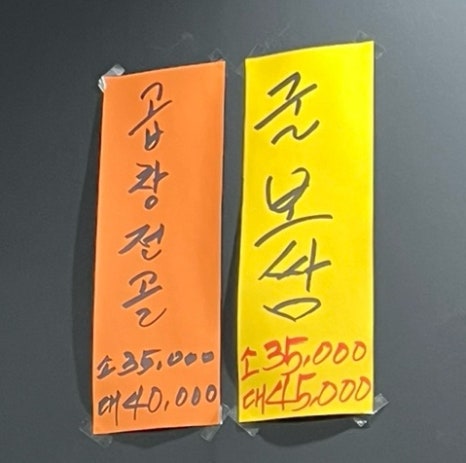 곱창전골
소 35,000
대 40,000
굴보쌈
소 35,000
대 45,000